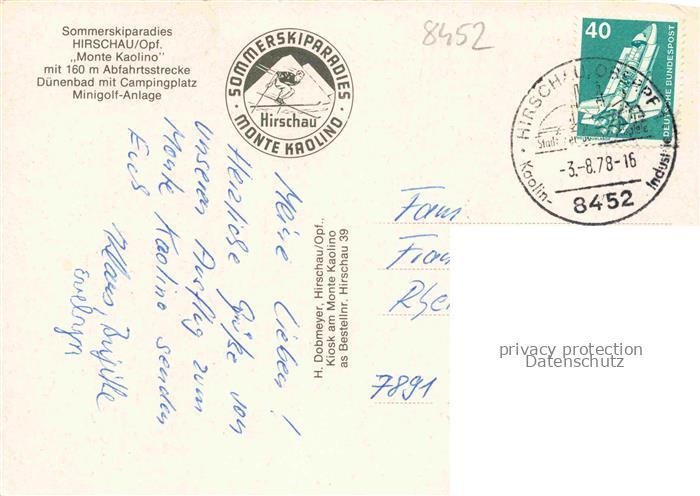 Sommerskiparadies
HIRSCHAU/Opf.
„Monte Kaolino"
mit 160 m Abfahrtsstrecke
Dünenbad mit Campingplatz
Minigolf-Anlage
· SOMMERSKIPARADIES ·
Hirschau
MONTE KAOLINO
8452
40
DEUTSCHE BUNDESPOST
· HIRSCHAU, OBERPF ·
-3.-8.78-16
Kaolin-
Industrie
8452
Meine Lieben!
Herzliche Grüße von
unserem Ausflug zum
Monte Kaolino senden
Euch
Klaus, Brigitte
Evelyn
H. Dobmeyer, Hirschau/Opf.,
Kiosk am Monte Kaolino
as Bestellnr. Hirschau 39
Fam
7891
privacy protection
Datenschutz